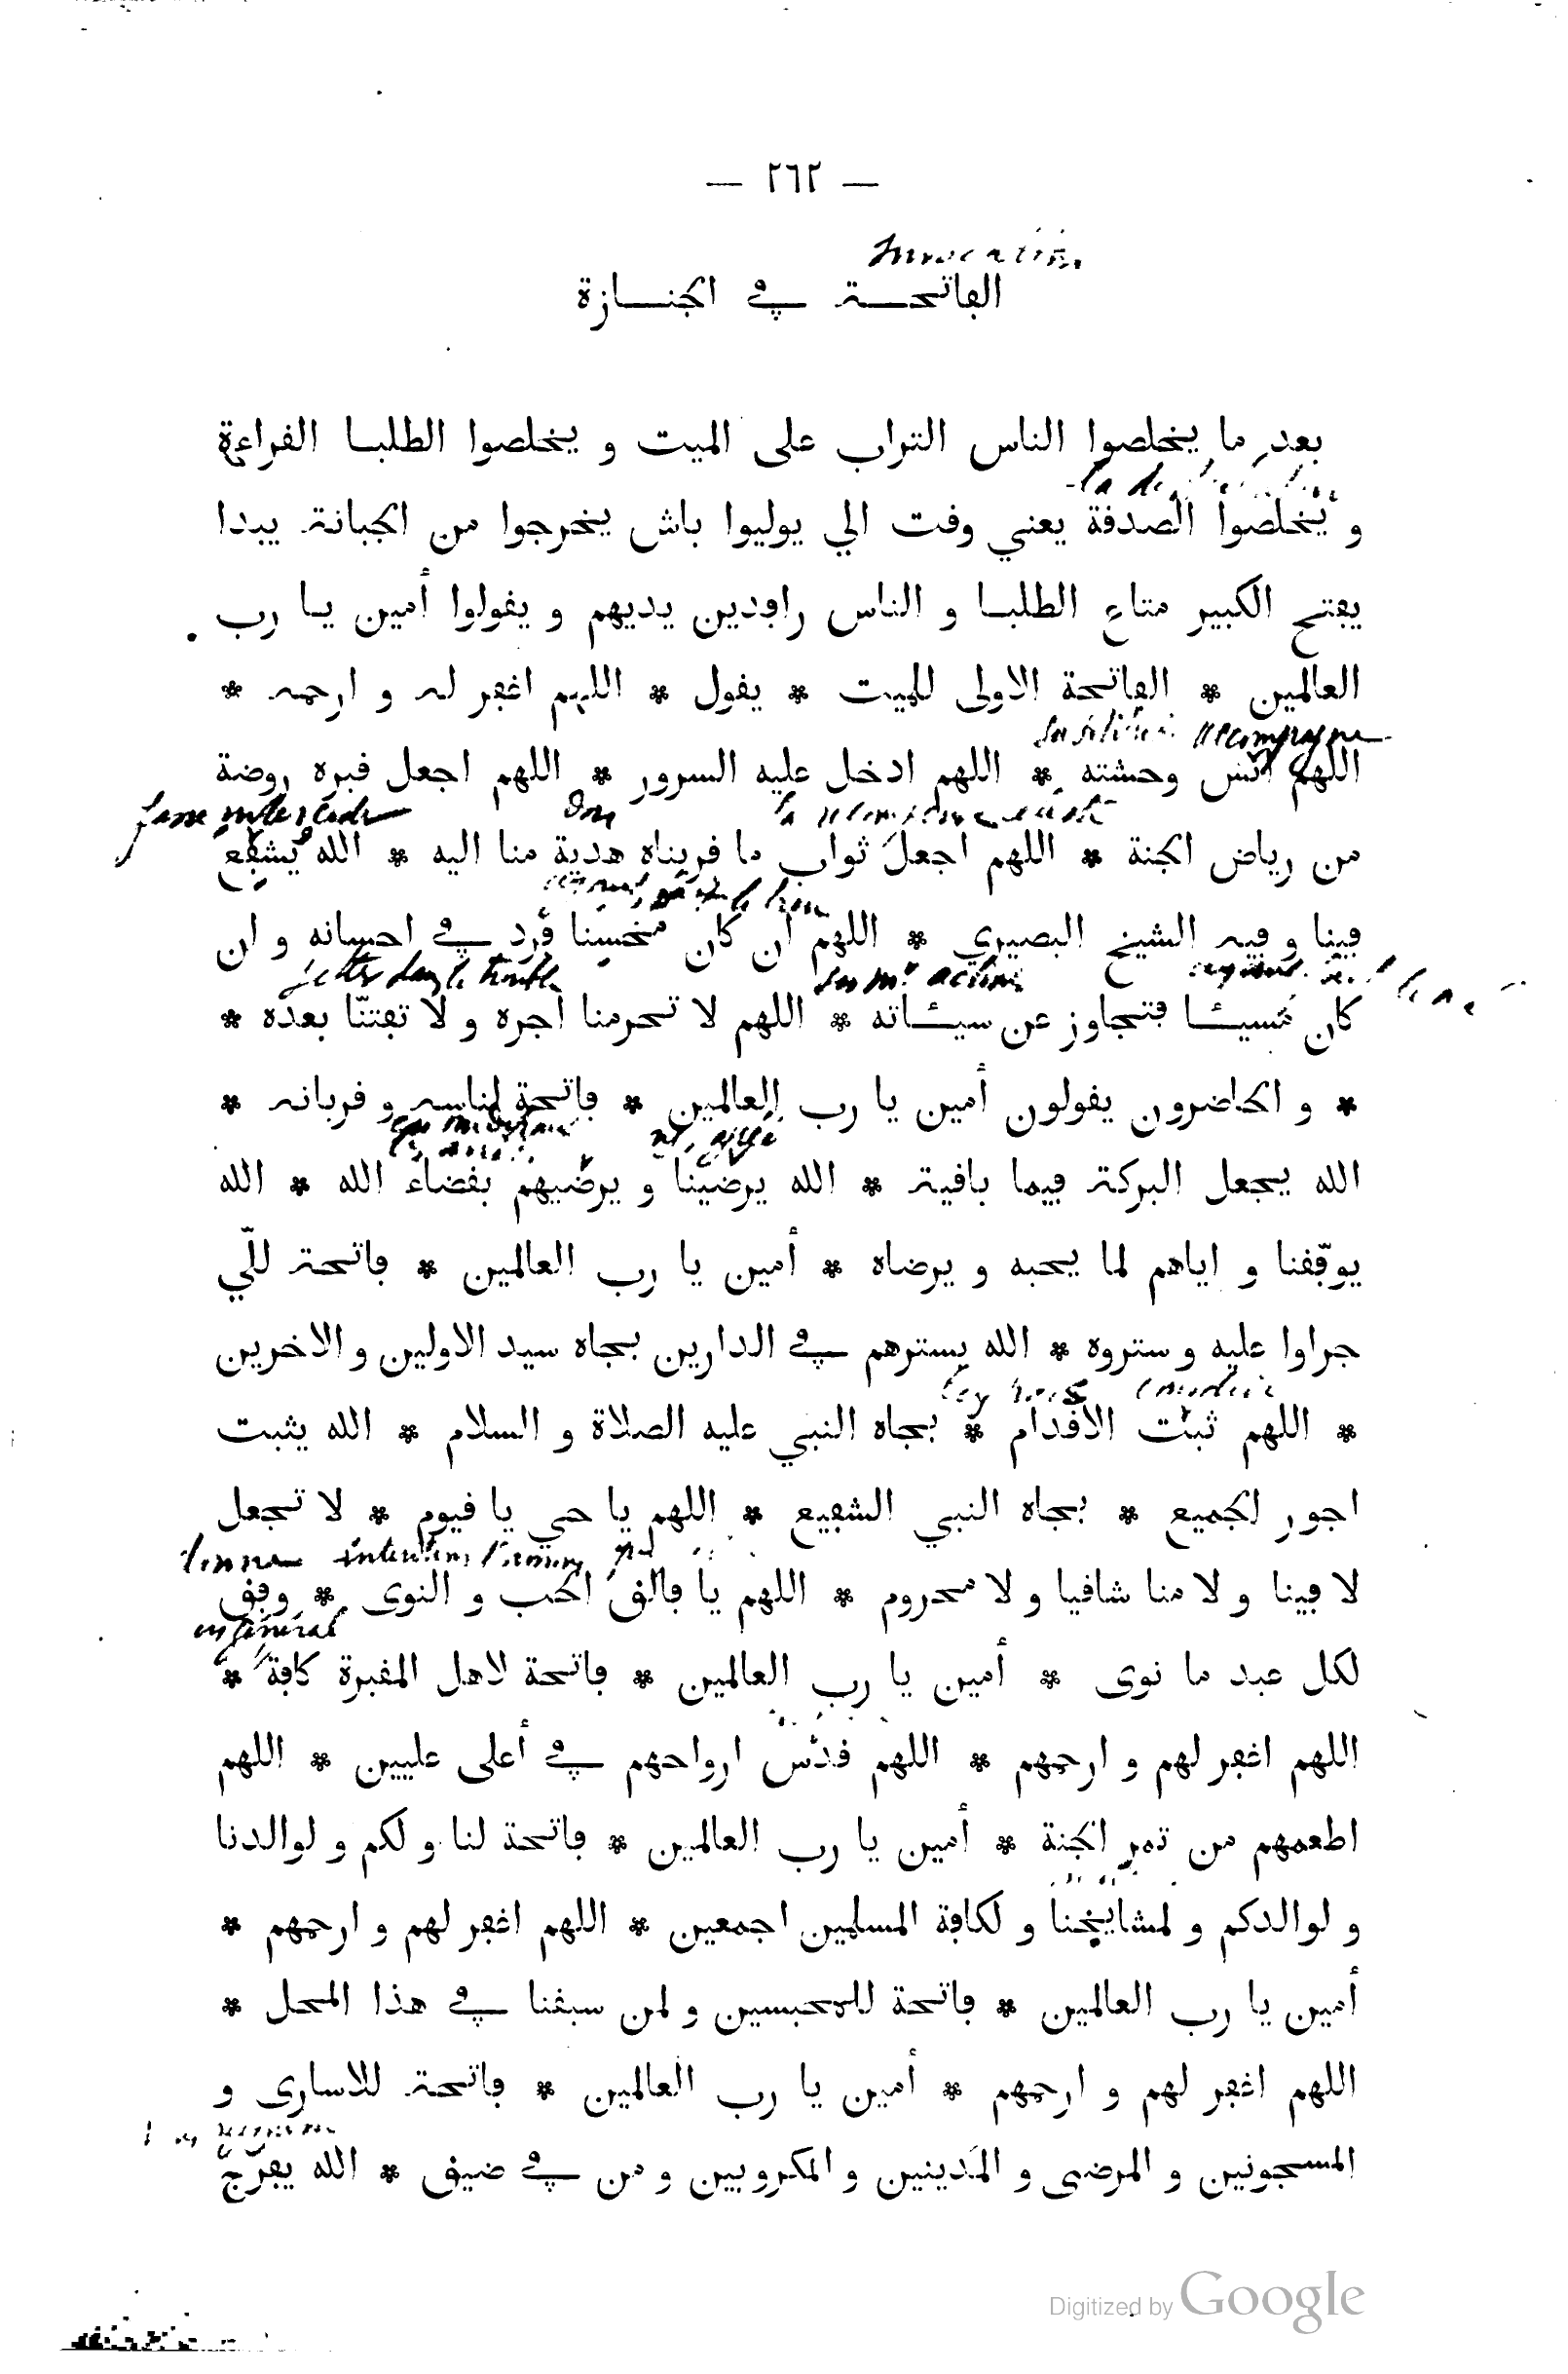 — ٢٦٢ —
Invocation
الفاتحة في الجنازة
بعد ما يخلصوا الناس التراب على الميت و يخلصوا الطلبا القراءة
و يخلصوا الصدقة يعني وقت الي يوليوا باش يخرجوا من الجبانة يبدا
يفتح الكبير متاع الطلبا و الناس رافدين يديهم و يقولوا أمين يا رب
العالمين * الفاتحة الاولى للميت * يقول * اللهم اغفر له و ارحمه *
accompagne
اللهم آنس وحشته * اللهم ادخل عليه السرور * اللهم اجعل قبره روضة
Don
من رياض الجنة * اللهم اجعل ثواب ما قريناه هدية منا اليه * الله يُشفّع
فينا و فيه الشيخ البصيري * اللهم ان كان محسنا فزد في احسانه و ان
كان مُسيئا فتجاوز عن سيئاته * اللهم لا تحرمنا اجره و لا تفتنّا بعده *
* و الحاضرون يقولون أمين يا رب العالمين * فاتحة لناسه و قربانه *
الله يجعل البركة فيما باقية * الله يرضّينا و يرضّيهم بقضاء الله * الله
يوفّقنا و اياهم لما يحبه و يرضاه * أمين يا رب العالمين * فاتحة للّي
جراوا عليه و ستروه * الله يسترهم في الدارين بجاه سيد الاولين و الاخرين
* اللهم ثبّت الاقدام * بجاه النبي عليه الصلاة و السلام * الله يثبت
اجور الجميع * بجاه النبي الشفيع * اللهم يا حي يا قيوم * لا تجعل
لا فينا و لا منا شاقيا و لا محروم * اللهم يا فالق الحب و النوى * وفق
en général
لكل عبد ما نوى * أمين يا رب العالمين * فاتحة لاهل المقبرة كافة *
اللهم اغفر لهم و ارحمهم * اللهم قدّس ارواحهم في أعلى عليين * اللهم
اطعمهم من تمر الجنة * أمين يا رب العالمين * فاتحة لنا و لكم و لوالدنا
و لوالدكم و لمشايخنا و لكافة المسلمين اجمعين * اللهم اغفر لهم و ارحمهم *
أمين يا رب العالمين * فاتحة للمحبسين و لمن سبقنا في هذا المحل *
اللهم اغفر لهم و ارحمهم * أمين يا رب العالمين * فاتحة للاسارى و
المسجونين و المرضى و المَدينين و المكروبين و من في ضيق * الله يفرّج
Digitized by Google